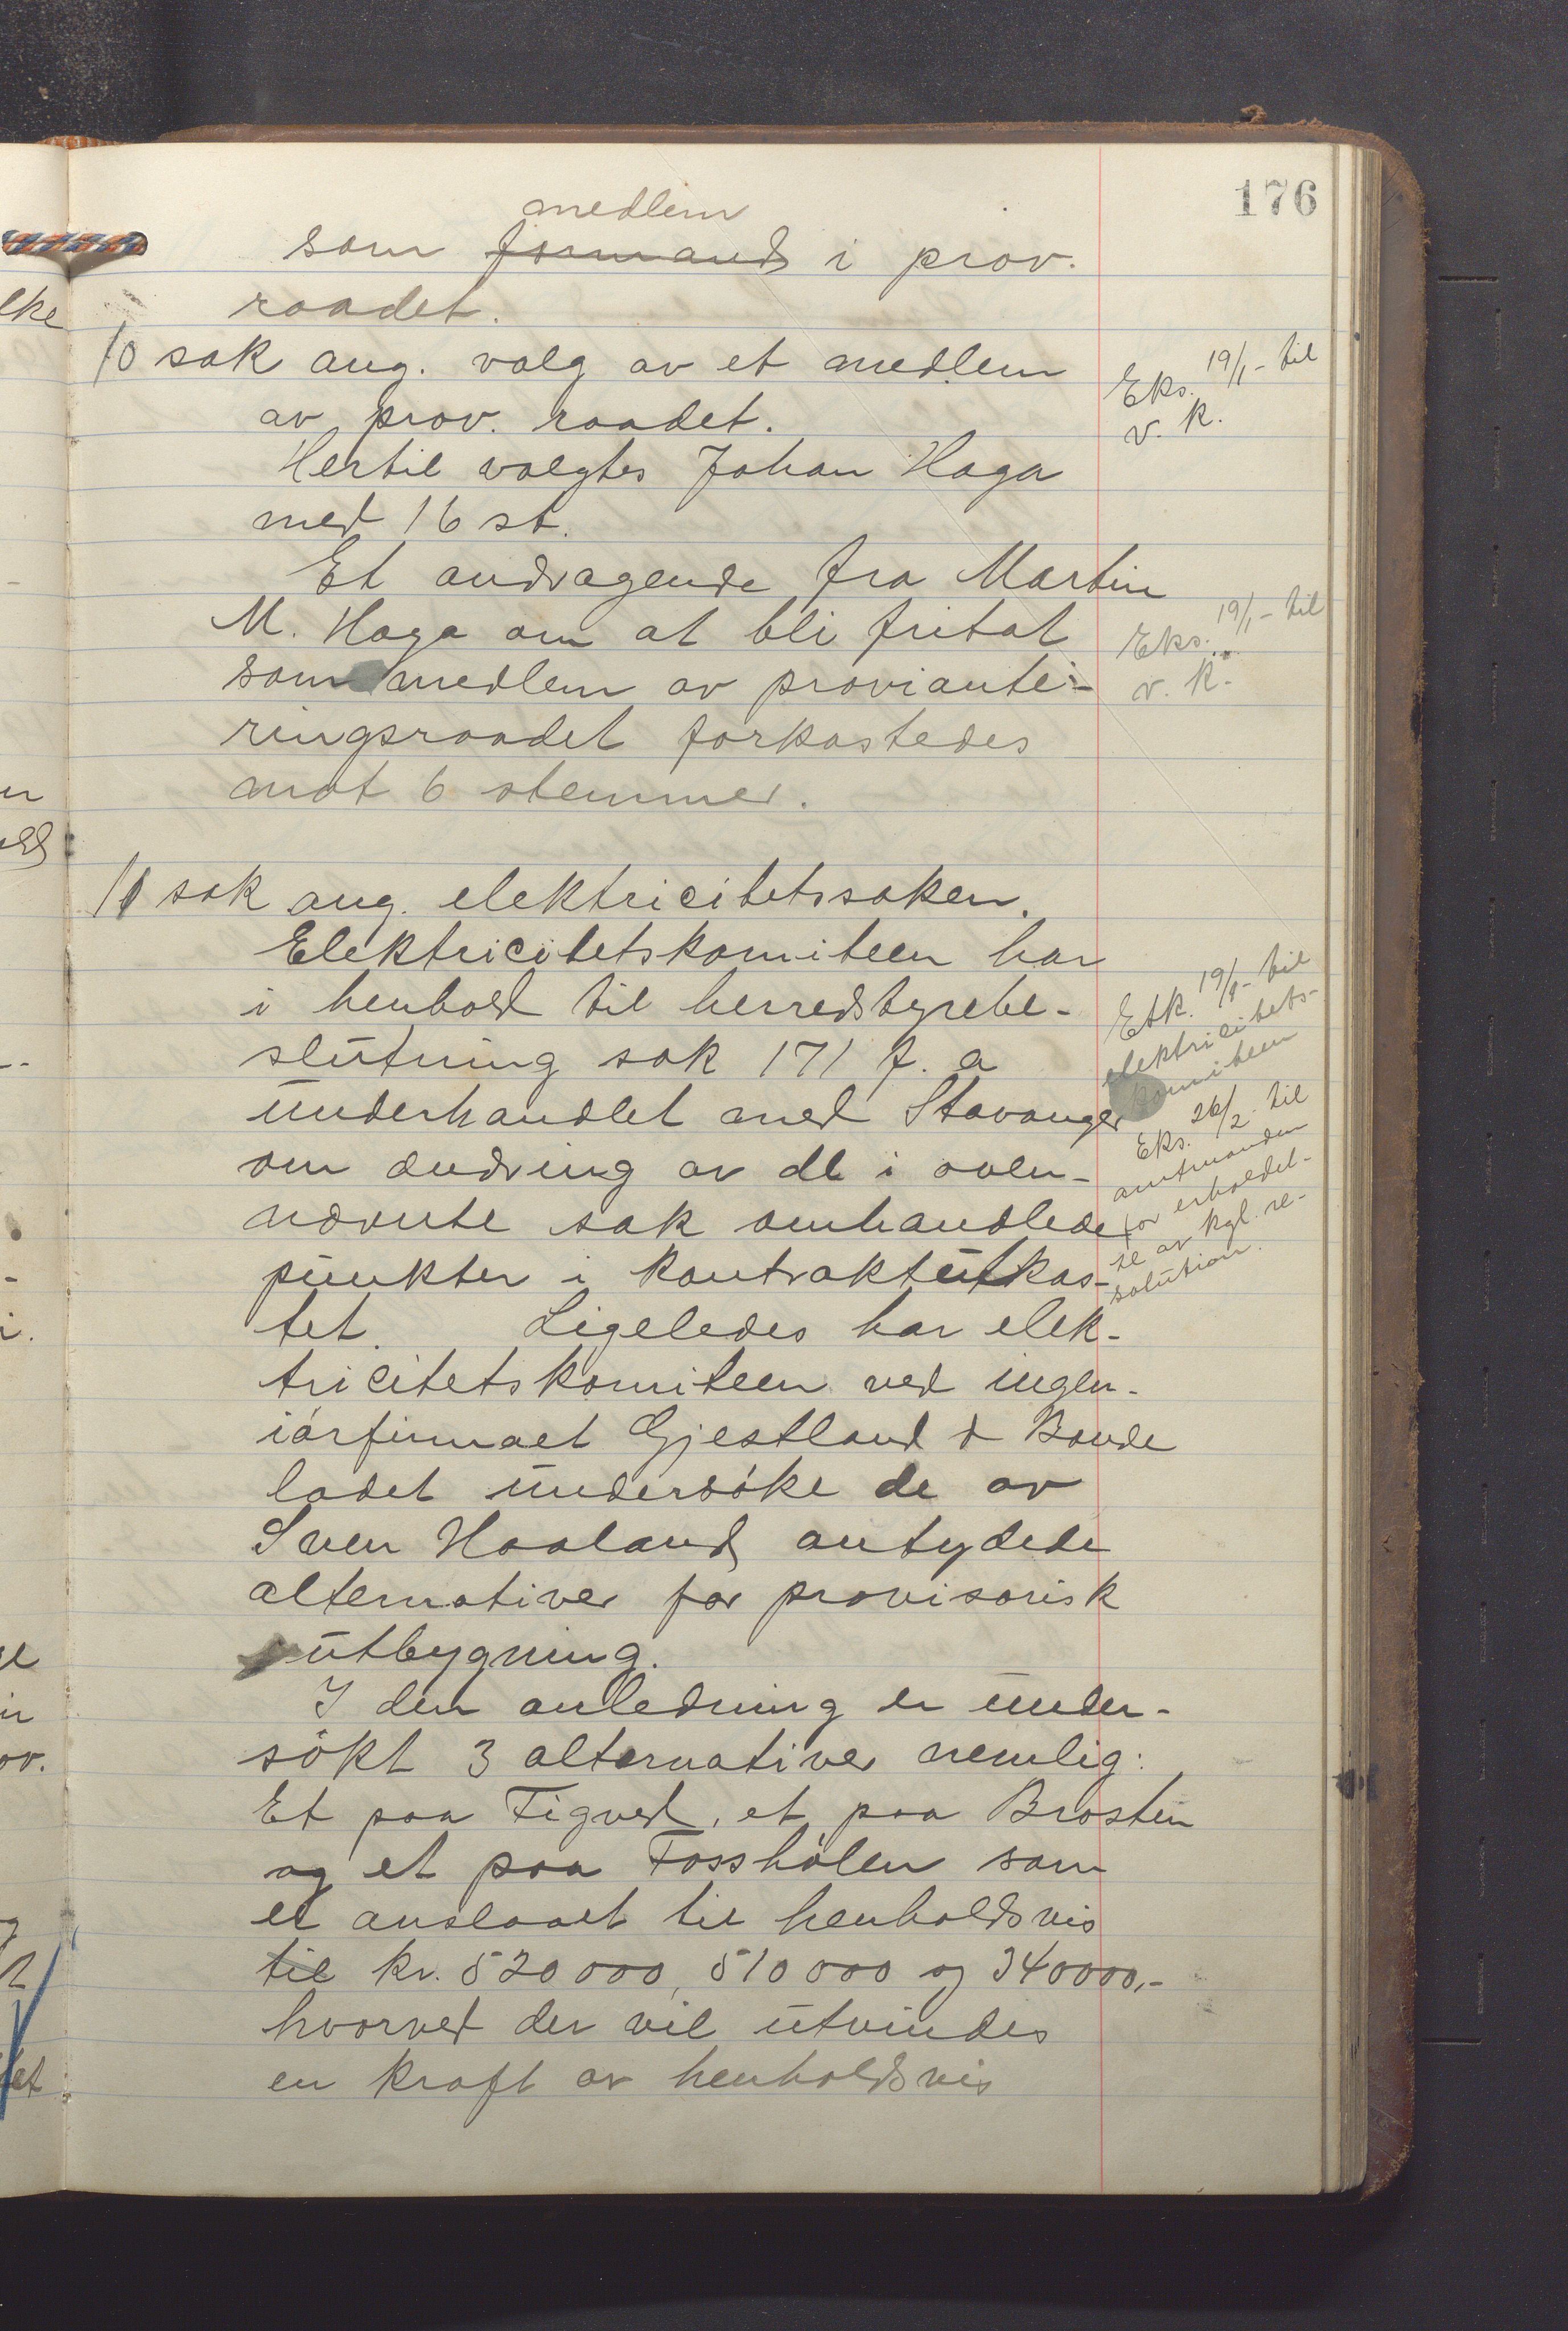 176
medlem
som formand i prov.
raadet.
10 sak ang. valg av et medlem
av prov. raadet.
Hertil valgtes Johan Haga
med 16 st.
Eks. 19/1- til
v. k.
Et andragende fra Martin
M. Haga om at bli fritat
som medlem av proviante-
ringsraadet forkastedes
mot 6 stemmer.
Eks. 19/1- til
v. k.
11 sak ang. elektricitetssaken.
Elektricitetskomiteen har
i henhold til herredstyrebe-
slutning sak 171 f. a
underhandlet med Stavanger
om ændring av de i oven-
nævnte sak omhandlede
punkter i kontraktutkas-
tet. Ligeledes har elek-
tricitetskomiteen ved ingen-
iørfirmaet Gjestland & Bonde
ladet undersøke de av
Sven Haaland antydede
alternativer for provisorisk
utbygning.
I den anledning er under-
søkt 3 alternativer nemlig:
Et paa Tigved, et paa Brosten
og et paa Fosshølen som
er anslaaet til henholdsvis
til kr. 520000, 510000 og 340000,-
hvorved der vil utvindes
en kraft av henholdsvis
19/1- til
elektricitets-
komiteen
Eks. 26/2 til
amtmanden
for erholdel-
se av kgl. re-
solution.